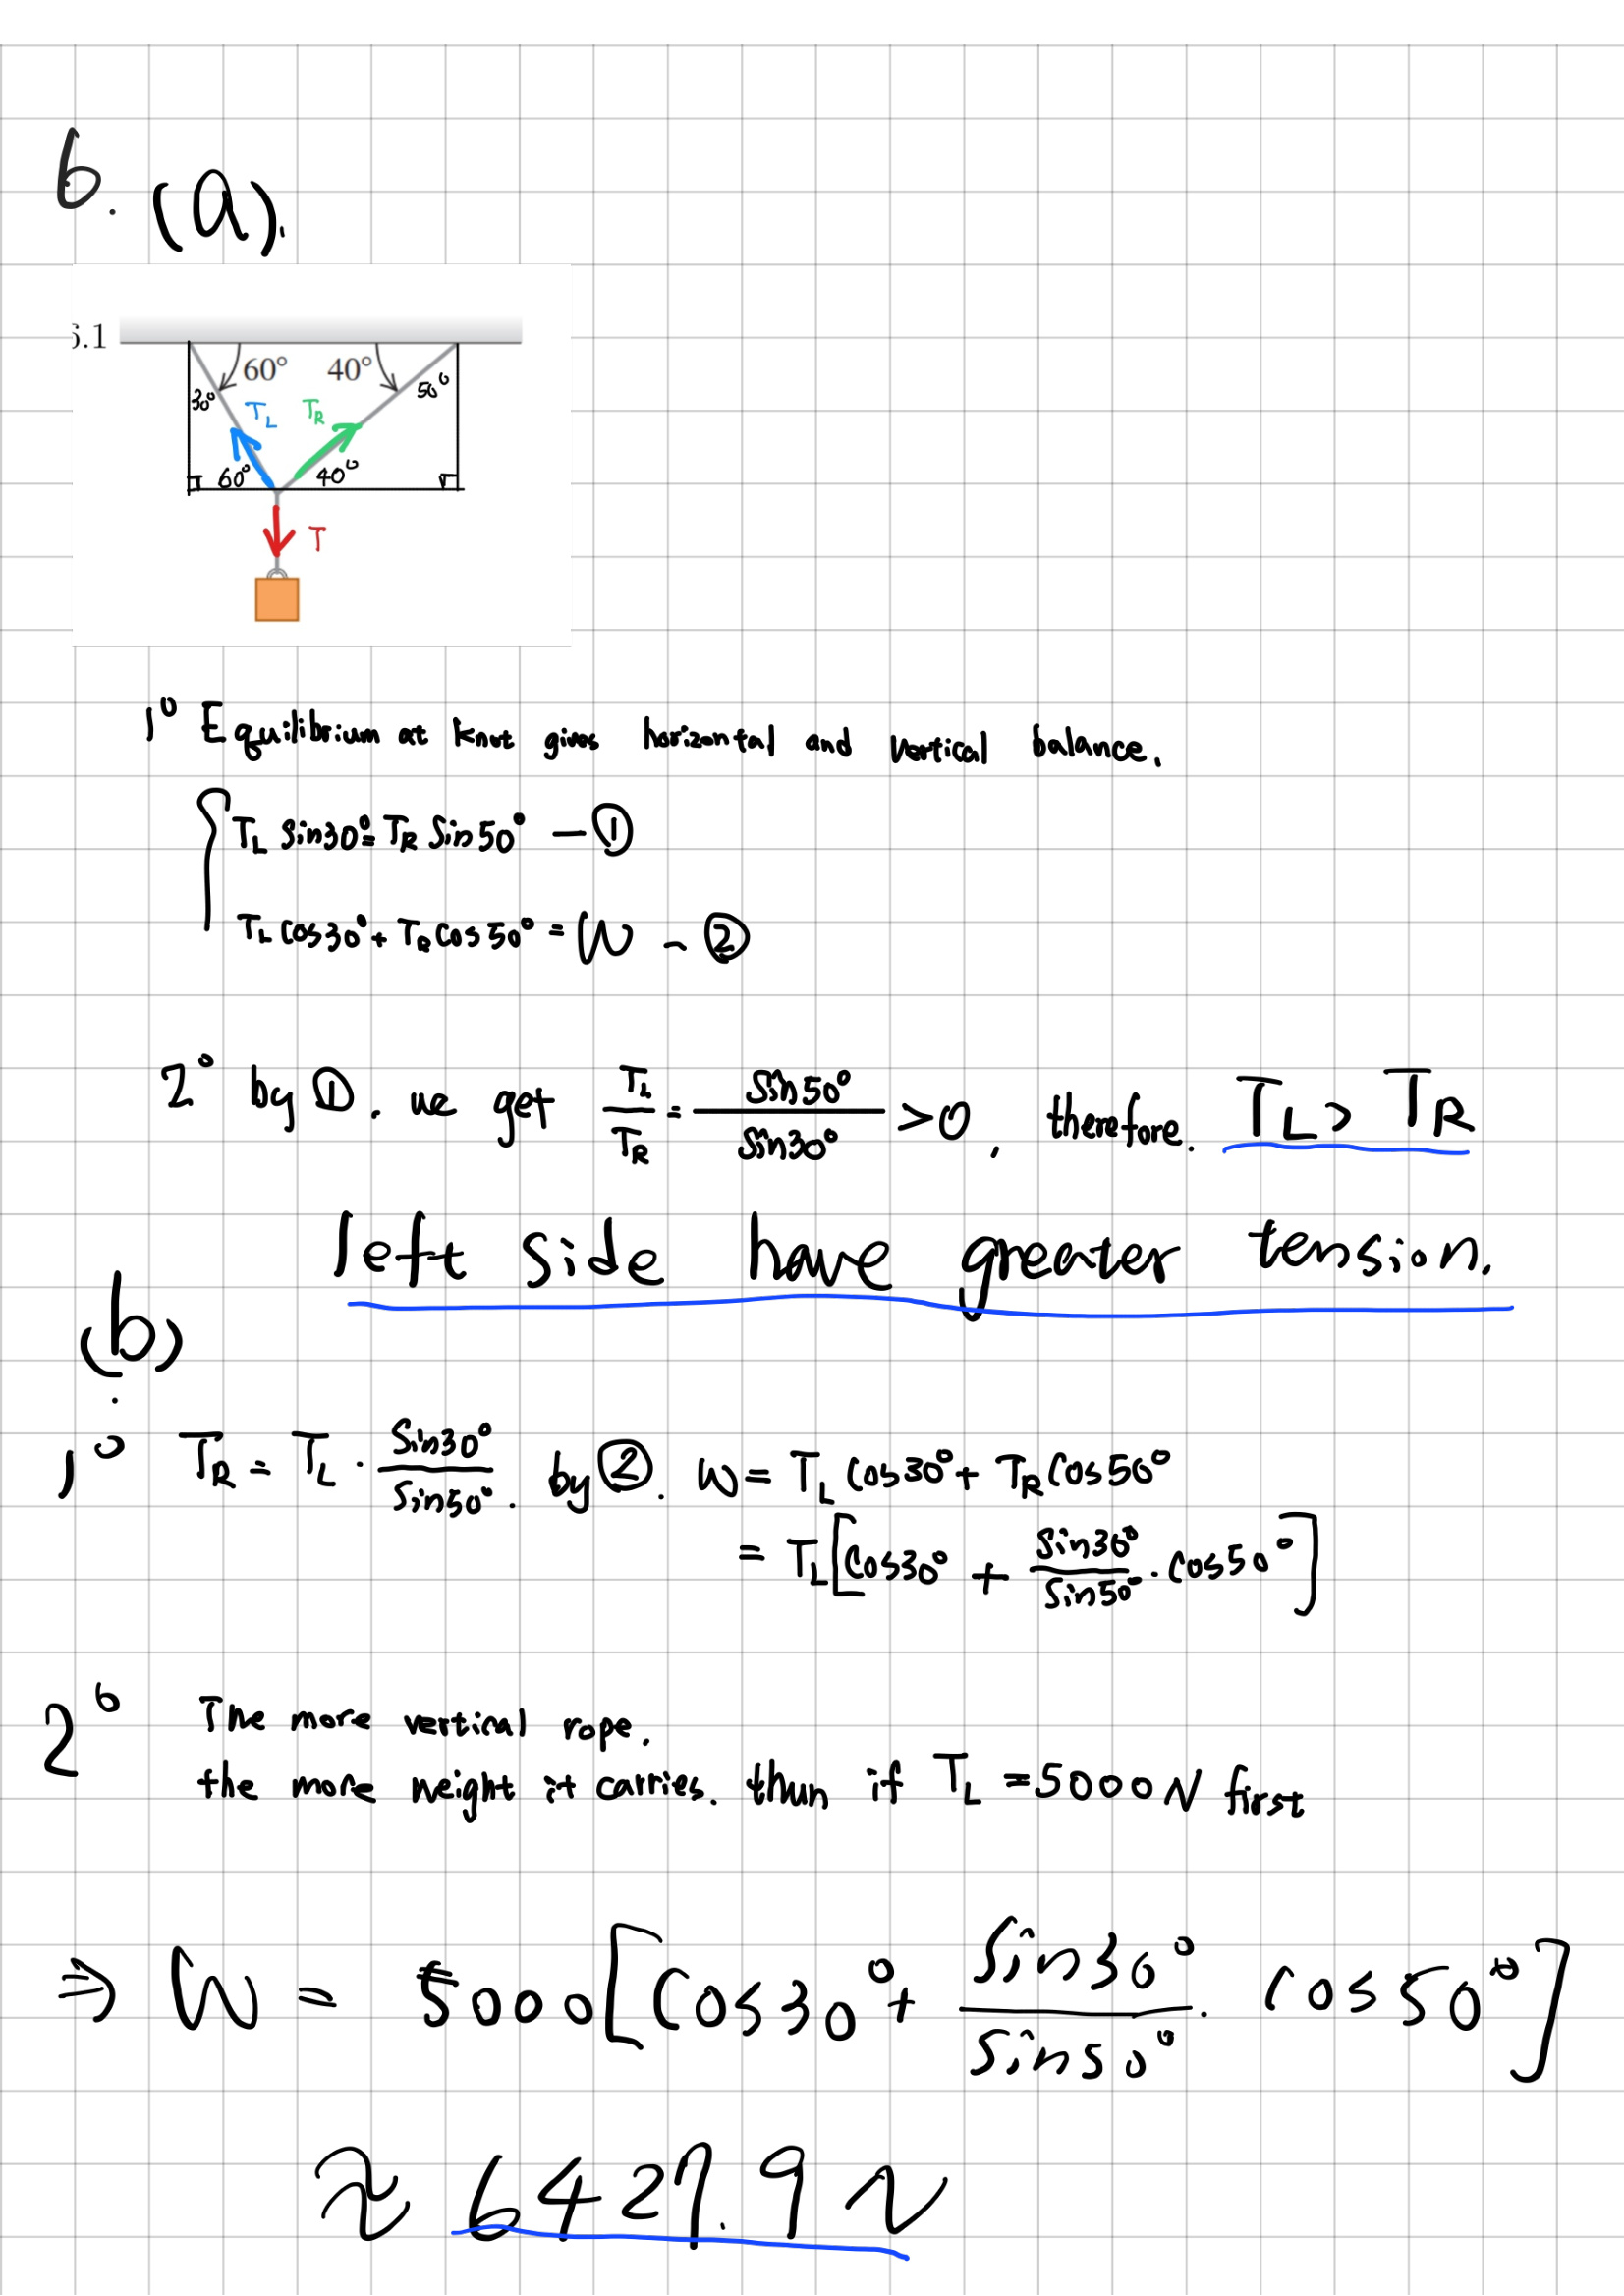 6. (a).
6.1
60° 40°
30° 50°
T_L T_R
60° 40°
T
1° Equilibrium at knot gives horizontal and vertical balance.
T_L sin30° = T_R sin50° — ①
T_L cos30° + T_R cos50° = W — ②
2° by ①. we get T_L/T_R = sin50°/sin30° > 0, therefore. T_L > T_R
left side have greater tension.
(b)
1° T_R = T_L · sin30°/sin50°. by ②. W = T_L cos30° + T_R cos50°
= T_L [cos30° + sin30°/sin50° · cos50°]
2° The more vertical rope.
the more weight it carries. thun if T_L = 5000N first
⇒ W = 5000 [cos30° + sin30°/sin50° · cos50°]
≈ 6427.9 N